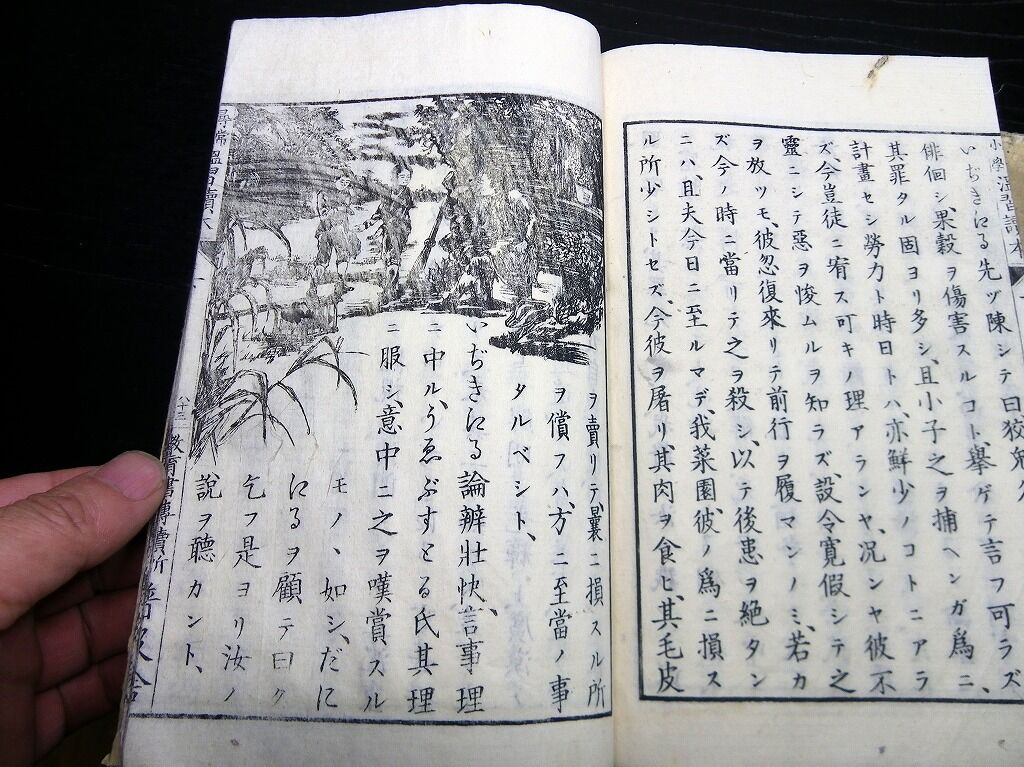 小學溫習讀本
いぢきにる先ヅ陳シテ曰狡兔
俳徊シ、果穀ヲ傷害スルコト、擧ゲテ言フ可ラズ
其罪タル固ヨリ多シ、且小子之ヲ捕ヘンガ爲ニ、
計畫セシ勞力ト時日トハ、亦鮮少ノコトニアラ
ズ、今豈徒ニ宥ス可キノ理アランヤ、况ンヤ彼不
靈ニシテ惡ヲ悛ムルヲ知ラズ、設令寬假シテ之
ヲ放ツモ、彼忽復來リテ前行ヲ履マンノミ、若カ
ズ今ノ時ニ當リテ之ヲ殺シ、以テ後患ヲ絶タン
ニハ、且夫今日ニ至ルマデ、我菜園、彼ノ爲ニ損ス
ル所少シトセズ、今彼ヲ屠リ、其肉ヲ食ヒ、其毛皮
ヲ賣リテ、曩ニ損スル所
ヲ償フハ、方ニ至當ノ事
タルベシト、
いぢきにる論辨壯快、言事理
ニ中ル、うゑぶすとる氏其理
ニ服シ、意中ニ之ヲ嘆賞スル
モノヽ如シ、だに
にるヲ顧テ曰ク
乞フ是ヨリ汝ノ
說ヲ聽カント、
八十三